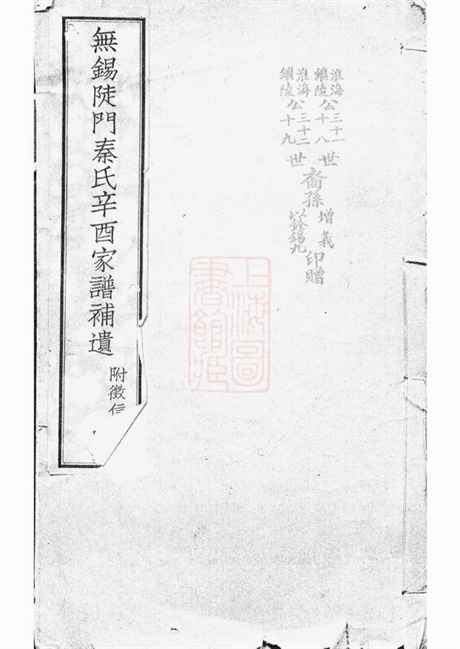 淮海公三十一世
繼陵公十八世
淮海公三十二世
繼陵公十九世
裔孫
增
以錫九
印贈
上海圖書館藏
無錫陡門秦氏辛酉家譜補遺
附徵